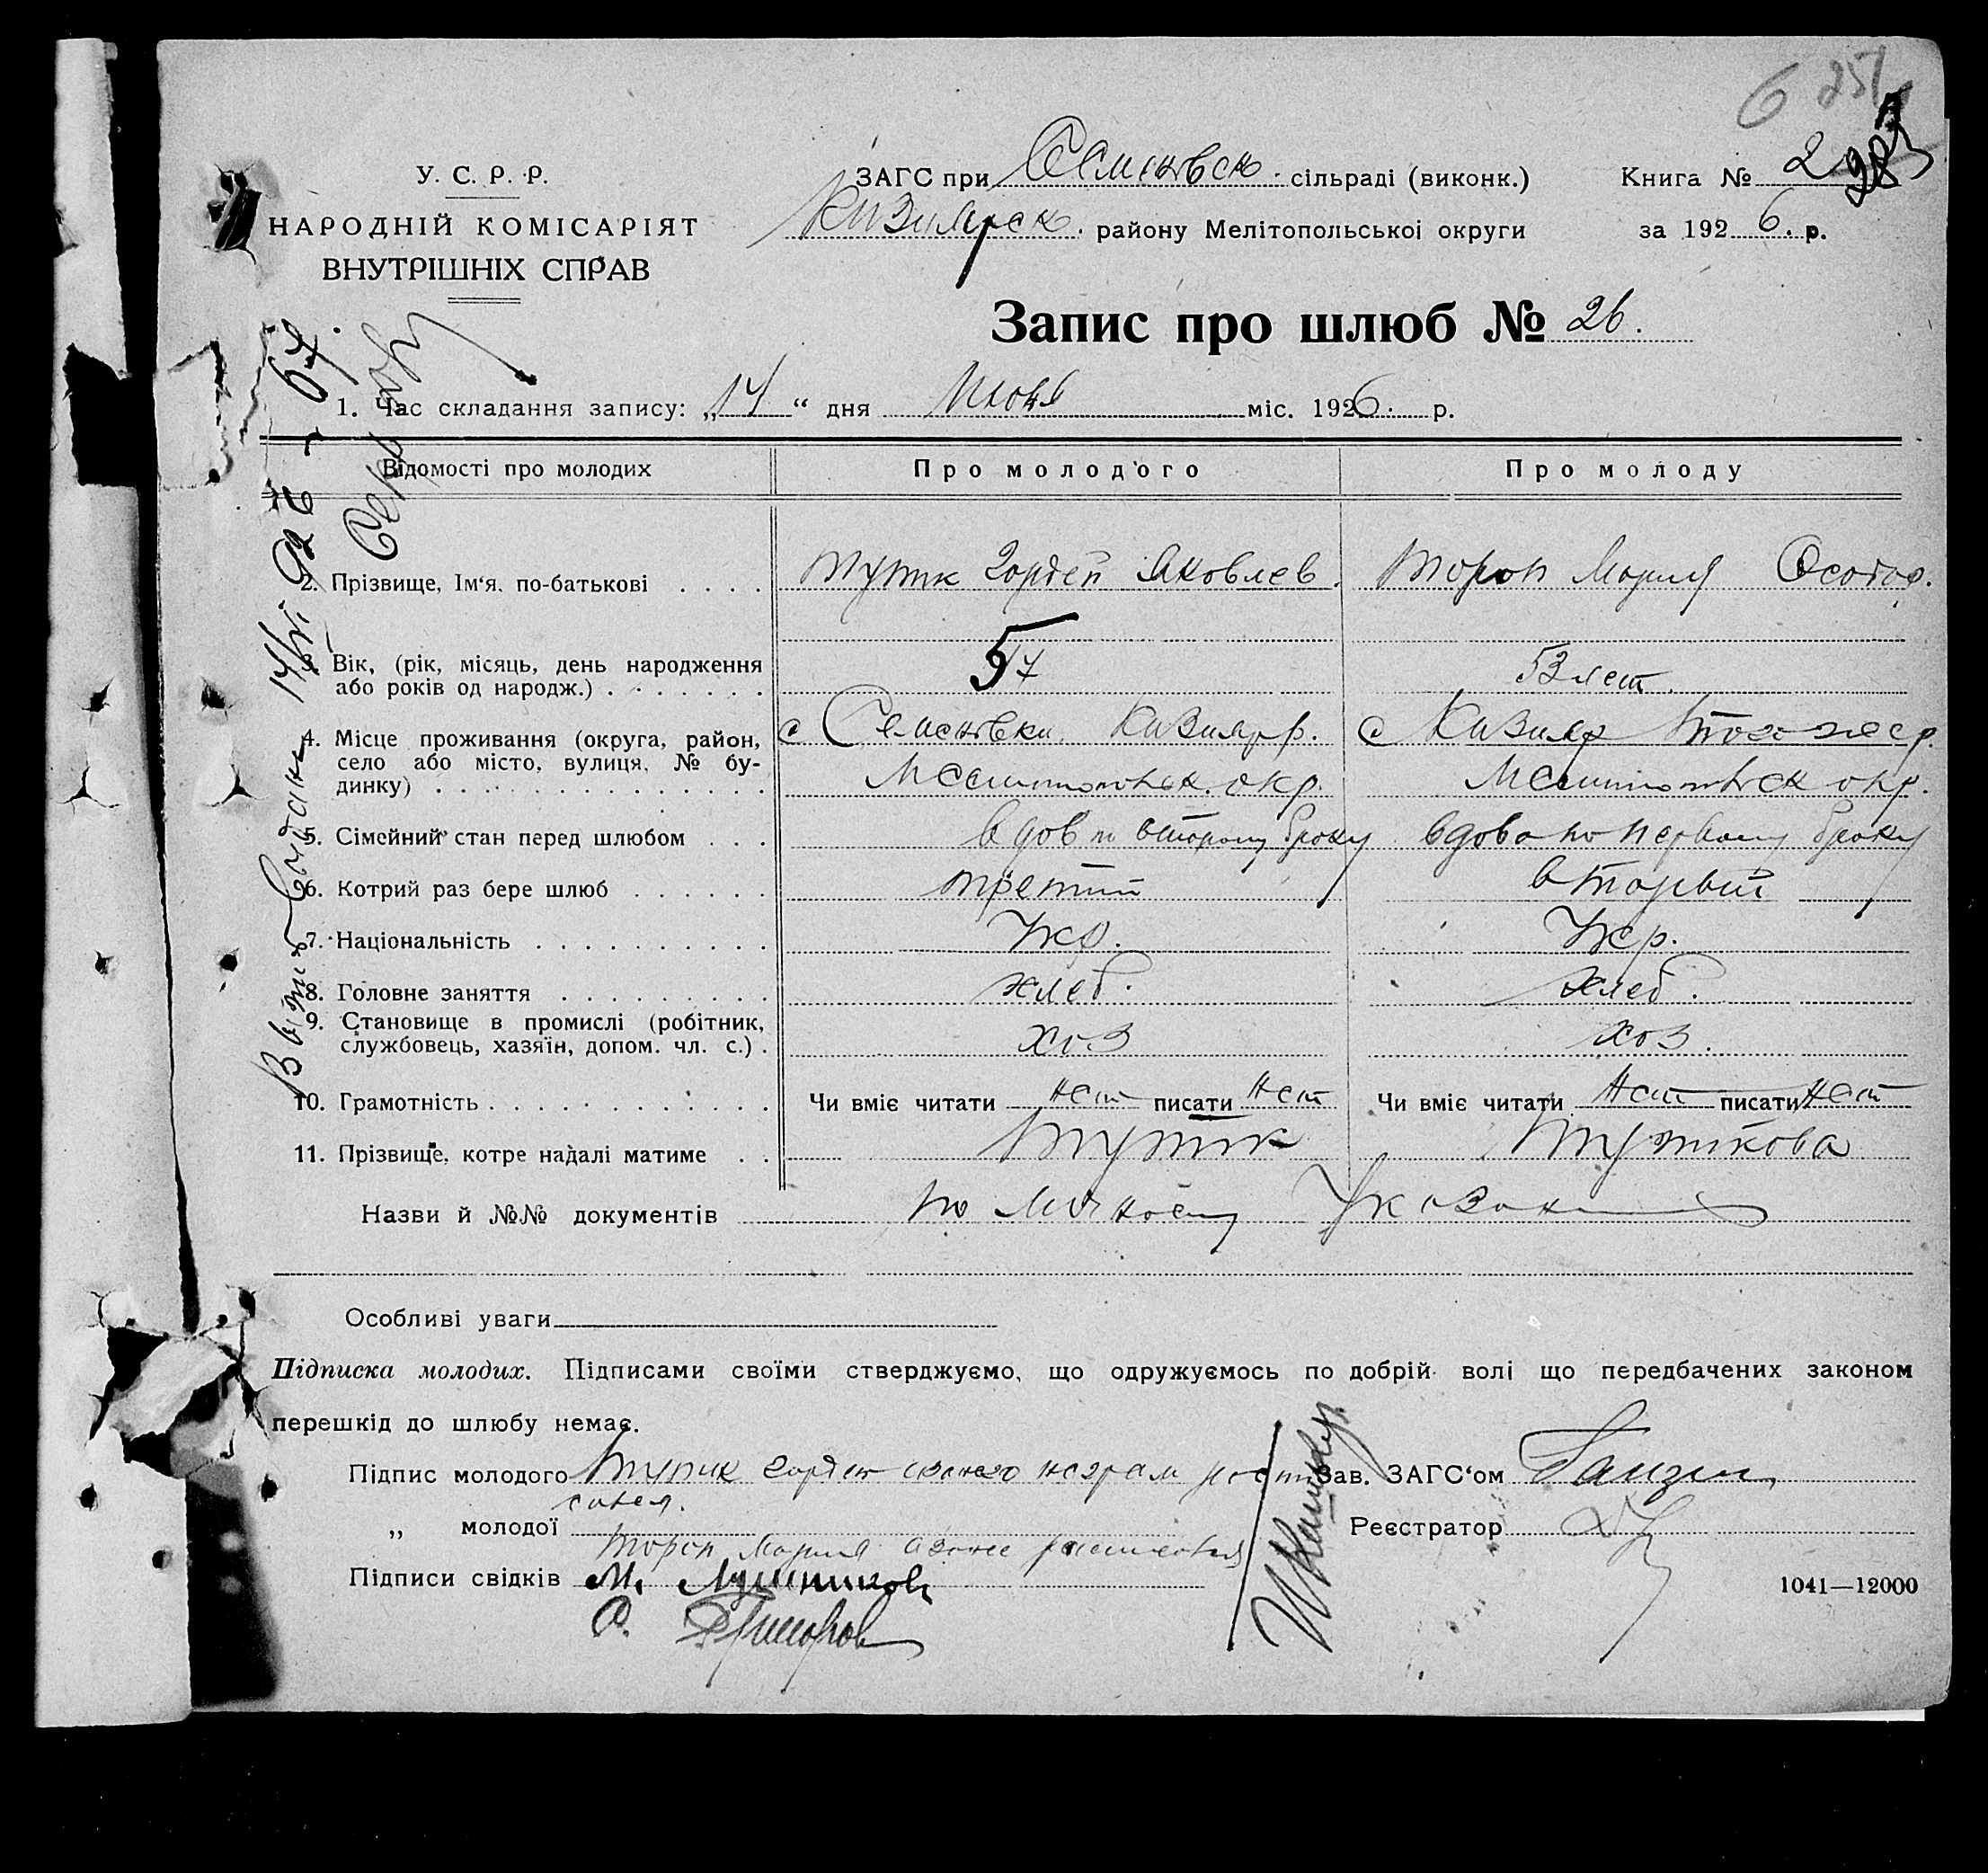 6 251
У. С. Р. Р.
НАРОДНІЙ КОМІСАРІЯТ
ВНУТРІШНІХ СПРАВ
ЗАГС при Семеновск. сільраді (виконк.)
Кизиярск. району Мелітопольської округи
Книга № 2
за 1926. р.
Запис про шлюб № 26.
1. Час складання запису: „14“ дня Июня міс. 1926. р.
Відомості про молодих Про молодого Про молоду
2. Прізвище, Ім‘я, по-батькові Тутик Гордей Яковлев. Тороп Мария Феодор.
3. Вік, (рік, місяць, день народження 57 53 лет.
або років од народж.)
4. Місце проживання (округа, район, с Семеновки Кизияр р. с Кизияр того же р.
село або місто, вулиця, № бу- Мелитопольск. окр. Мелитопольск окр.
динку)
5. Сімейний стан перед шлюбом вдов по второму браку вдова по первому браку
6. Котрий раз бере шлюб третий вторый
7. Національність Укр. Укр.
8. Головне заняття хлеб. хлеб.
9. Становище в промислі (робітник, хоз хоз.
службовець, хазяїн, допом. чл. с.)
10. Грамотність Чи вміє читати нет писати нет Чи вміє читати нет писати нет
11. Прізвище, котре надалі матиме Тутик Тутикова
Назви й №№ документів по личному
Особливі уваги
Підписка молодих. Підписами своїми стверджуємо, що одружуємось по добрій волі що передбачених законом
перешкід до шлюбу немає.
Підпис молодого Гордей Зав. ЗАГС‘ом
„ молодої Реєстратор
Тороп Мария
Підписи свідків М.
1041—12000